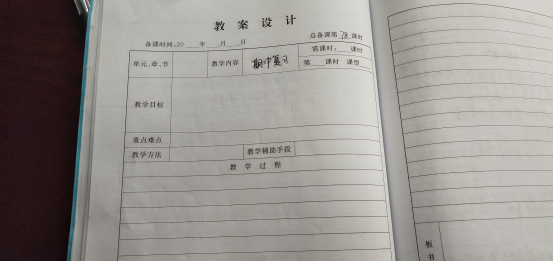 教案设计
备课时间:20 年 月 日 总备课第78课时
单元、章、节 教学内容 期中复习 需课时: 课时
第 课时 课型
教学目标
重点难点
教学方法 教学辅助手段
教学过程
板
书